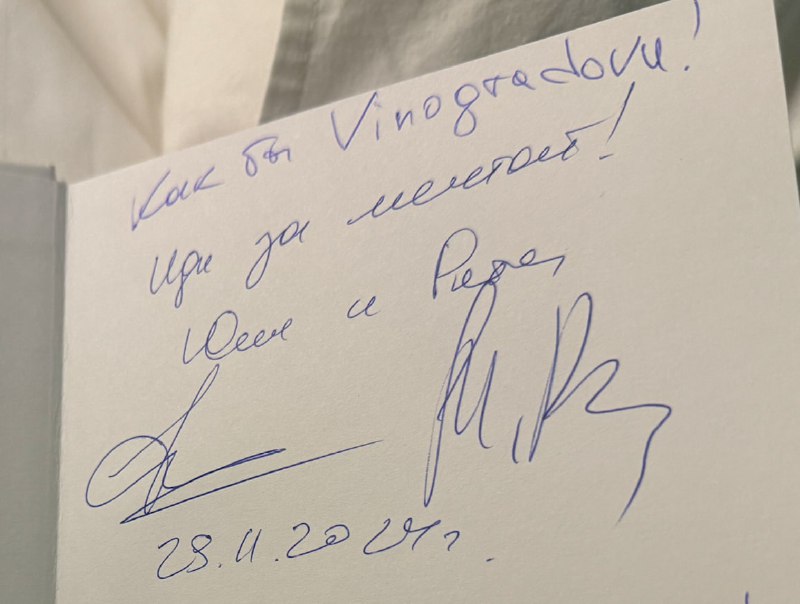 Как бы Vinogradovu!
Иди за мечтой!
Юля и Рита
28.11.2024г.